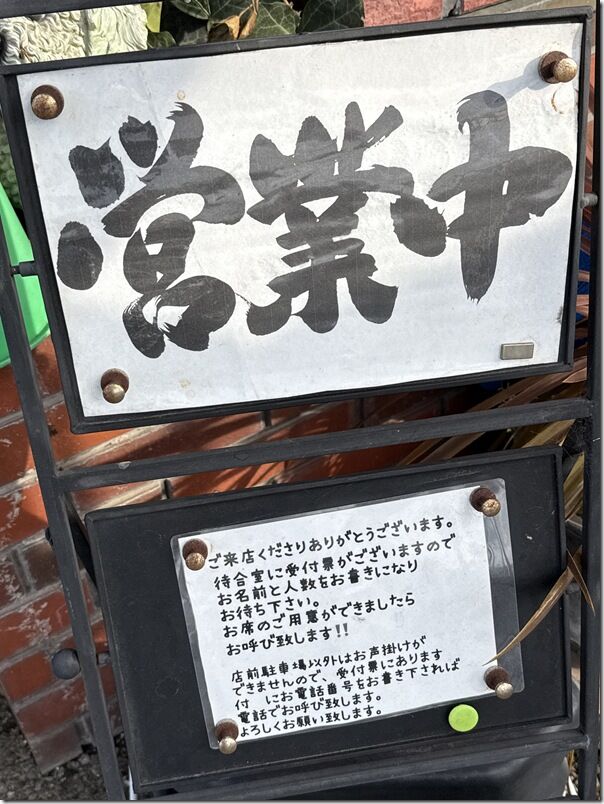 営業中
ご来店くださりありがとうございます。
待合室に受付票がございますので
お名前と人数をお書きになり
お待ち下さい。
お席のご用意ができましたら
お呼び致します!!
店前駐車場以外はお声掛けが
できませんので、受付票にあります
付 にお電話番号をお書き下されば
電話でお呼び致します。
よろしくお願い致します。